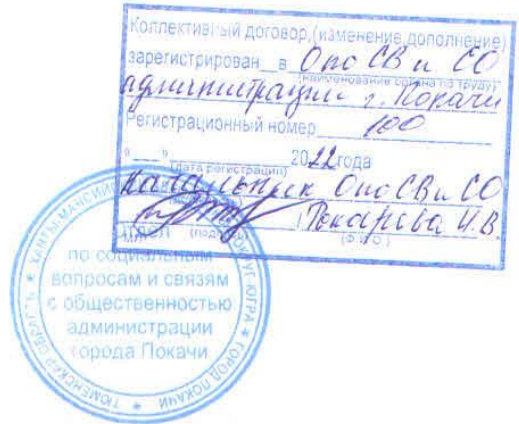 Коллективный договор,(изменение,дополнение)
зарегистрирован в ОпоСВ и СО
(наименование органа по труду)
администрации г. Покачи
Регистрационный номер 100
"___" 2022года
(дата регистрации)
Начальник ОпоСВ и СО
(Токарева И.В.
(Ф.И.О.)
отдел
по социальным
вопросам и связям
с общественностью
администрации
города Покачи
ТЮМЕНСКАЯ ОБЛАСТЬ * ХАНТЫ-МАНСИЙСКИЙ ОКРУГ-ЮГРА * ГОРОД ПОКАЧИ *